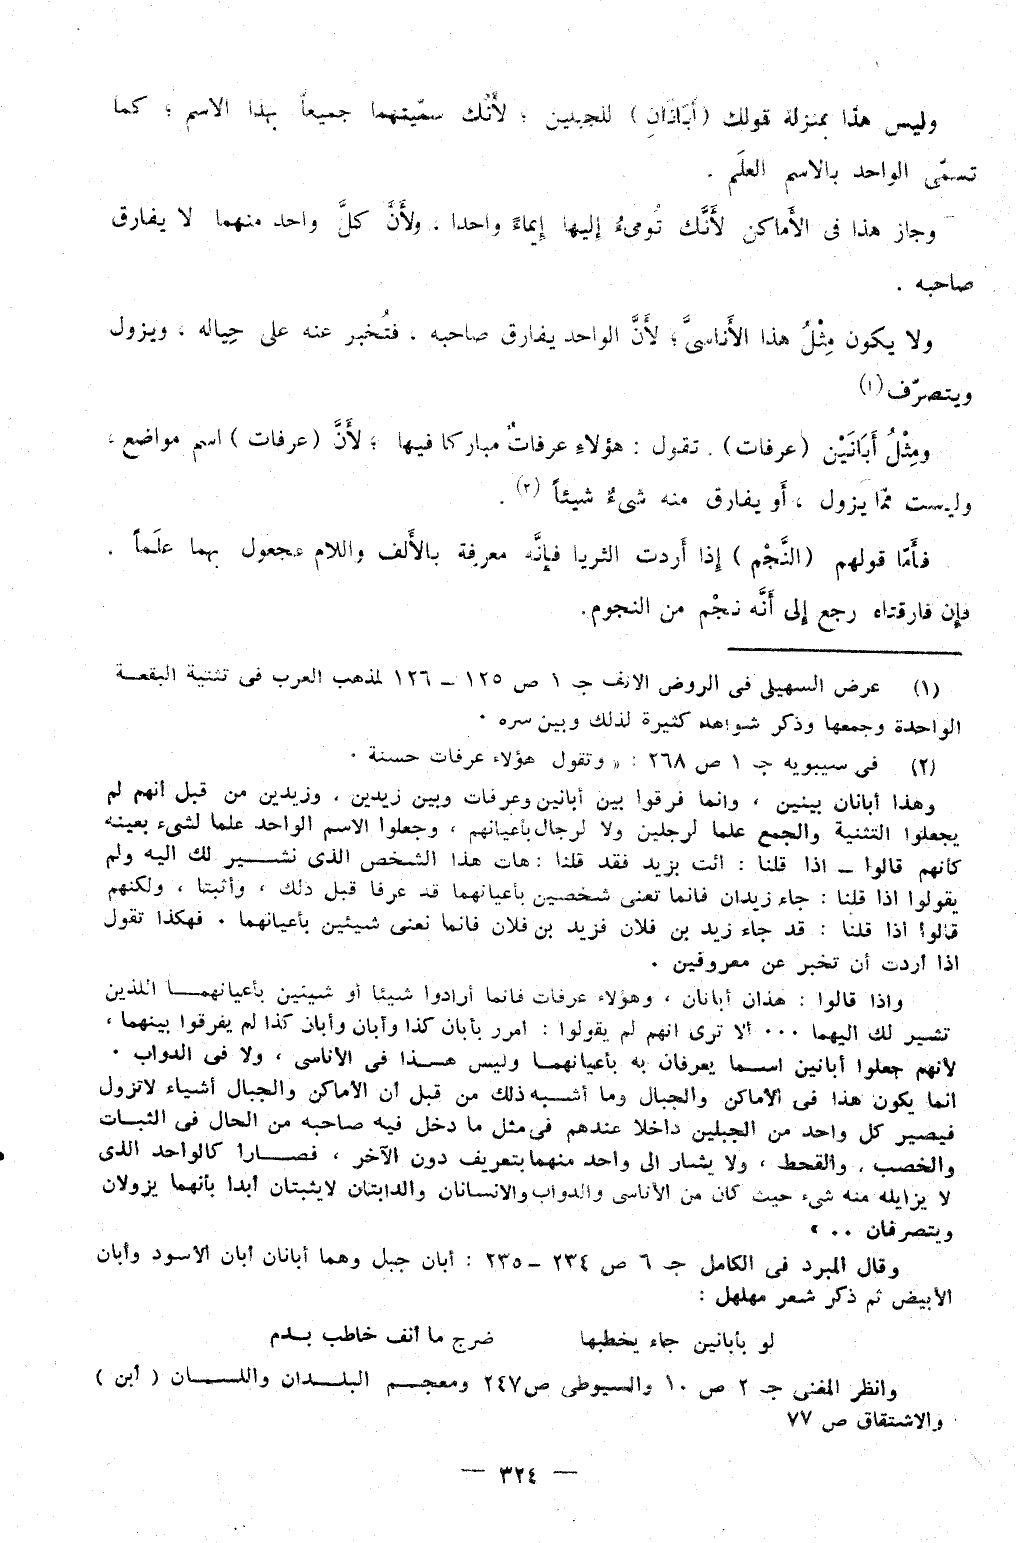 وليس هذا بمنزلة قولك (أَبَانَانِ) للجبلين ؛ لأَنَّك سمّيتهما جميعاً بهذا الاسم ؛ كما
تسمّى الواحد بالاسم العلَم .
وجاز هذا فى الأَماكن لأَنَّك تُومىءُ إليها إيماءً واحدا ، ولأَنَّ كلَّ واحد منهما لا يفارق
صاحبه .
ولا يكون مِثْلُ هذا الأَناسىَّ ؛ لأَنَّ الواحد يفارق صاحبه . فتُخبر عنه على حِياله ، ويزول
ويتصرّف (١)
ومِثْلُ أَبَانَيْن (عرفات) . تقول : هؤلاءِ عرفاتٌ مباركا فيها ؛ لأَنَّ (عرفات) اسم مواضع ،
وليست ممّا يزول ، أَو يفارق منه شىءٌ شيئاً (٢) .
فأَمّا قولهم (النَّجْم) إذا أَردت الثريا فإنَّه معرفة بالأَلف واللام مجعول بهما علَماً .
فإن فارقتاه رجع إلى أَنَّه نجْم من النجوم .
(١) عرض السهيلى فى الروض الانف جـ ١ ص ١٢٥ ـ ١٢٦ لمذهب العرب فى تثنية البقعـة
الواحدة وجمعها وذكر شواهد كثيرة لذلك وبين سره .
(٢) فى سيبويه جـ ١ ص ٢٦٨ : « وتقول هؤلاء عرفات حسنة .
وهذا أبانان بينين ، وانما فرقوا بين أبانين وعرفات وبين زيدين ، وزيدين من قبل أنهم لم
يجعلوا التثنية والجمع علما لرجلين ولا لرجال بأعيانهم ، وجعلوا الاسم الواحد علما لشىء بعينه
كأنهم قالوا ـ اذا قلنا : ائت بزيد فقد قلنا : هات هذا الشخص الذى نشـــير لك اليه ولم
يقولوا اذا قلنا : جاء زيدان فانما تعنى شخصين بأعيانهما قد عرفا قبل ذلك ، وأثبتا ، ولكنهم
قالوا اذا قلنا : قد جاء زيد بن فلان فزيد بن فلان فانما نعنى شيئين بأعيانهما . فهكذا تقول
اذا أردت أن تخبر عن معروفين .
واذا قالوا : هذان أبانان ، وهؤلاء عرفات فانما أرادوا شيئا أو شيئين بأعيانهمـــا اللذين
تشير لك اليهما ... ألا ترى انهم لم يقولوا : امرر بأبان كذا وأبان وأبان كذا لم يفرقوا بينهما ،
لأنهم جعلوا أبانين اسـما يعرفان به بأعيانهمـا وليس هـــذا فى الأناسى ، ولا فى الدواب .
انما يكون هذا فى الأماكن والجبال وما أشــبه ذلك من قبل أن الأماكن والجبال أشياء لاتزول
فيصير كل واحد من الجبلين داخلا عندهم فى مثل ما دخل فيه صاحبه من الحال فى الثبـات
والخصب ، والقحط ، ولا يشار الى واحد منهما بتعريف دون الآخر ، فصـــارا كالواحد الذى
لا يزايله منه شىء حيث كان من الأناسى والدواب والانسانان والدابتان لايثبتان أبدا بأنهما يزولان
ويتصرفان .. »
وقال المبرد فى الكامل جـ ٦ ص ٢٣٤ ـ ٢٣٥ : أبان جبل وهما أبانان أبان الأسود وأبان
الأبيض ثم ذكر شعر مهلهل :
لو بأبانين جاء يخطبها ضرج ما أنف خاطب بـدم
وانظر المغنى جـ ٢ ص ١٠ والسيوطى ص ٢٤٧ ومعجـم البلـدان واللسـان ( أبن )
والاشتقاق ص ٧٧
— ٣٢٤ —